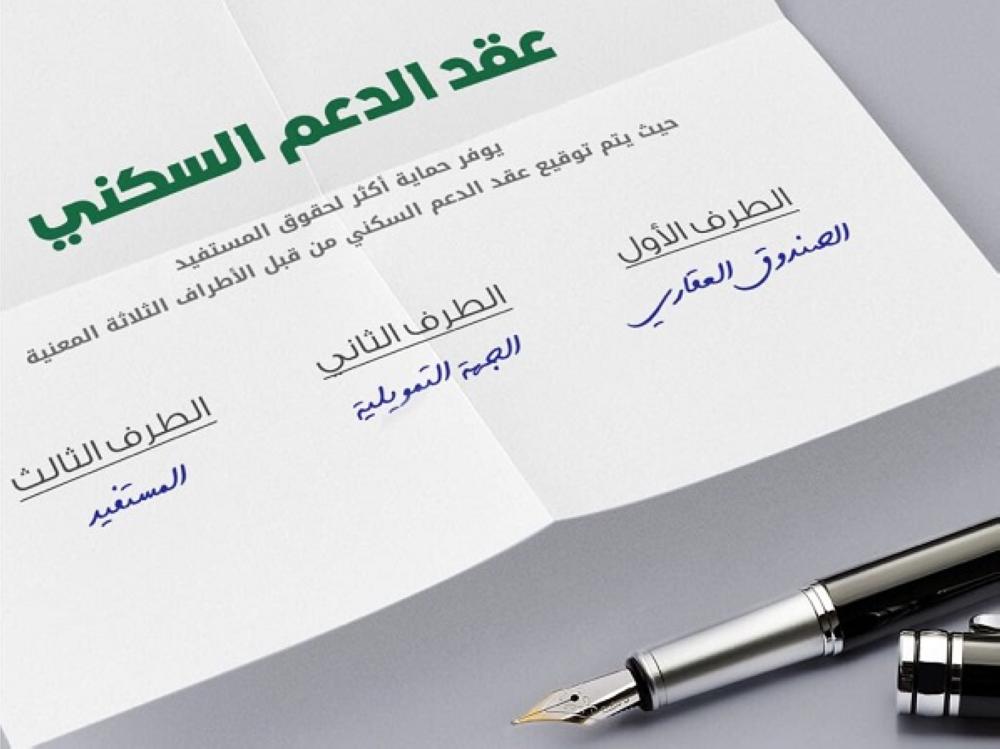 عقد الدعم السكني
يوفر حماية أكثر لحقوق المستفيد
حيث يتم توقيع عقد الدعم السكني من قبل الأطراف الثلاثة المعنية
الطرف الأول
الصندوق العقاري
الطرف الثاني
الجهة التمويلية
الطرف الثالث
المستفيد